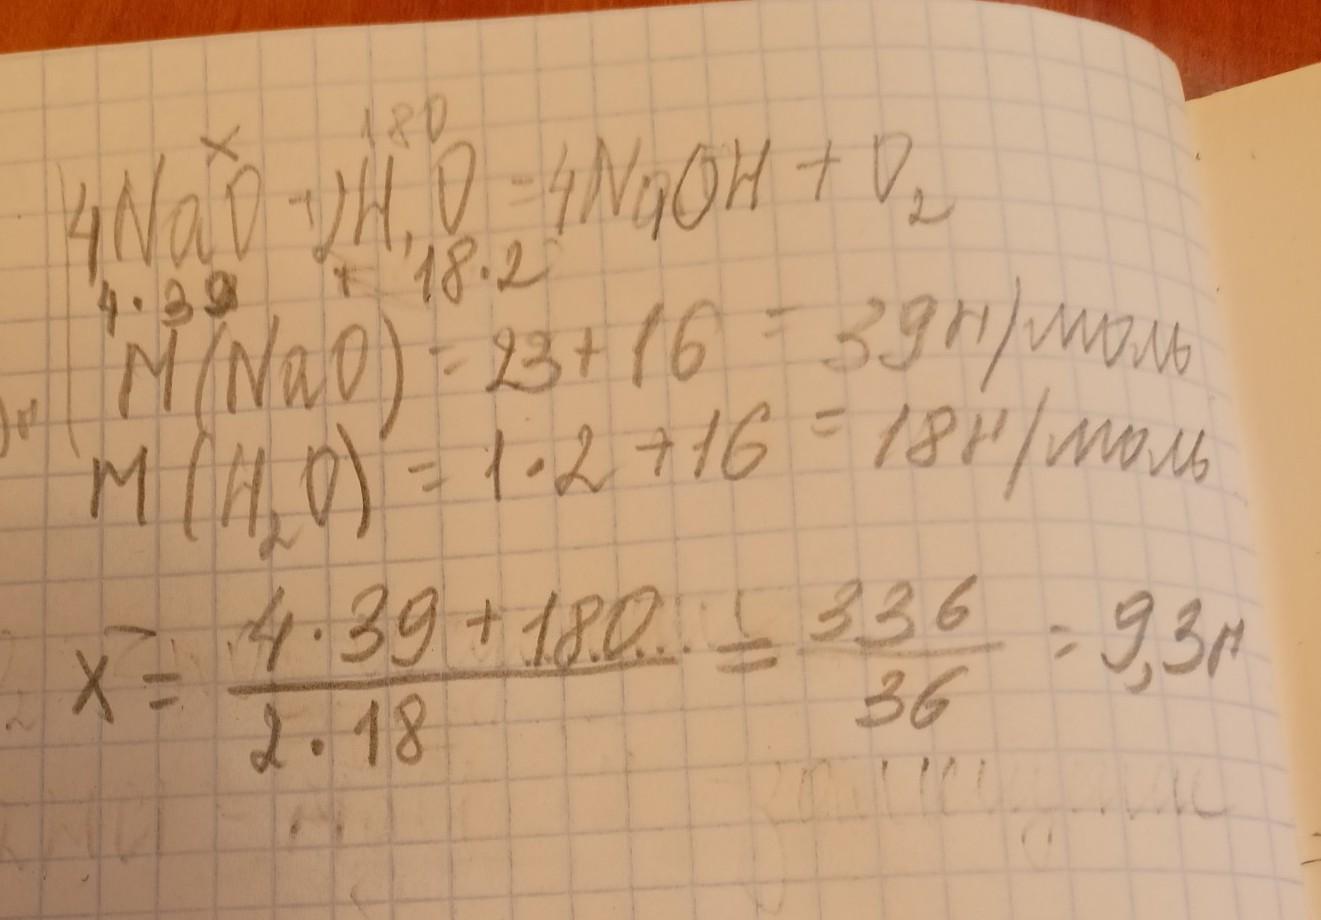 x 180
4NaO + 2H₂O = 4NaOH + O₂
4·39 + 18·2
M(NaO) = 23+16 = 39г/моль
M(H₂O) = 1·2+16 = 18г/моль
X = 4·39+180 / 2·18 = 336 / 36 = 9,3г